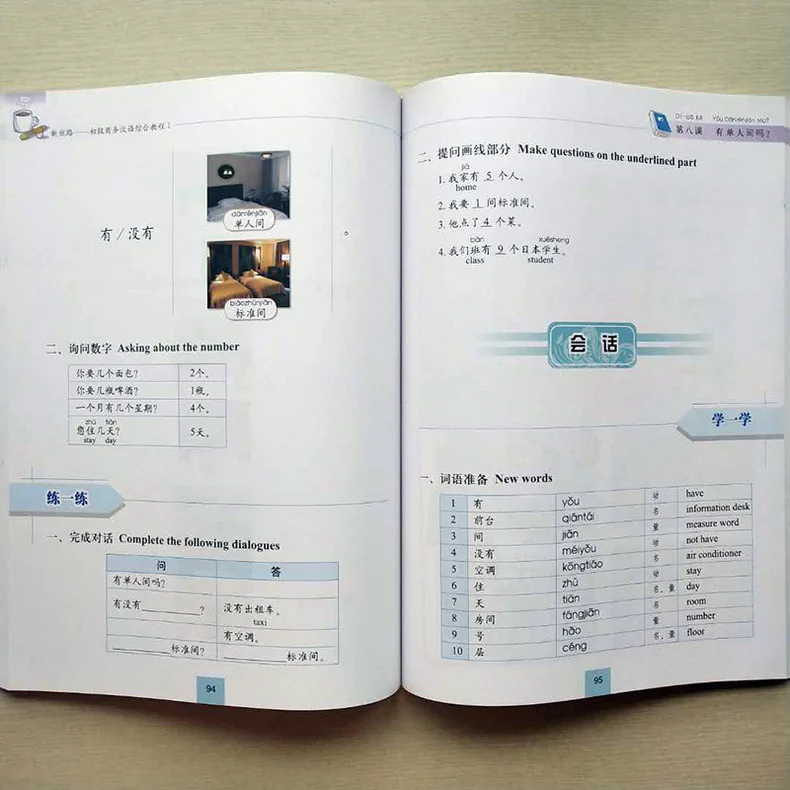 新丝路——初级商务汉语综合教程 I
有/没有
dānrénjiān
单人间
biāozhǔnjiān
标准间
二、询问数字 Asking about the number
你要几个面包? 2个。
你要几瓶啤酒? 1瓶。
一个月有几个星期? 4个。
zhù tiān
您住几天? 5天。
stay day
练一练
一、完成对话 Complete the following dialogues
问 答
有单人间吗?
有没有________? 没有出租车。
taxi
有空调。
________标准间? ________标准间。
94
Dì-bā Kè Yǒu Dānrénjiān Ma?
第八课 有单人间吗?
二、提问画线部分 Make questions on the underlined part
jiā
1. 我家有 5 个人。
home
2. 我要 1 间标准间。
3. 他点了 4 个菜。
bān xuésheng
4. 我们班有 9 个日本学生。
class student
会话
学一学
一、词语准备 New words
1 有 yǒu 动 have
2 前台 qiántái 名 information desk
3 间 jiān 量 measure word
4 没有 méiyǒu 动 not have
5 空调 kōngtiáo 名 air conditioner
6 住 zhù 动 stay
7 天 tiān 名、量 day
8 房间 fángjiān 名 room
9 号 hào 量 number
10 层 céng 名、量 floor
95